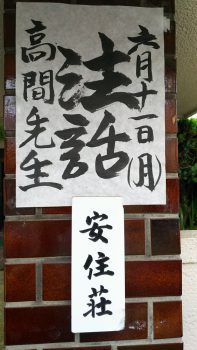 六月十一日(月)
法話
高間先生
安住荘